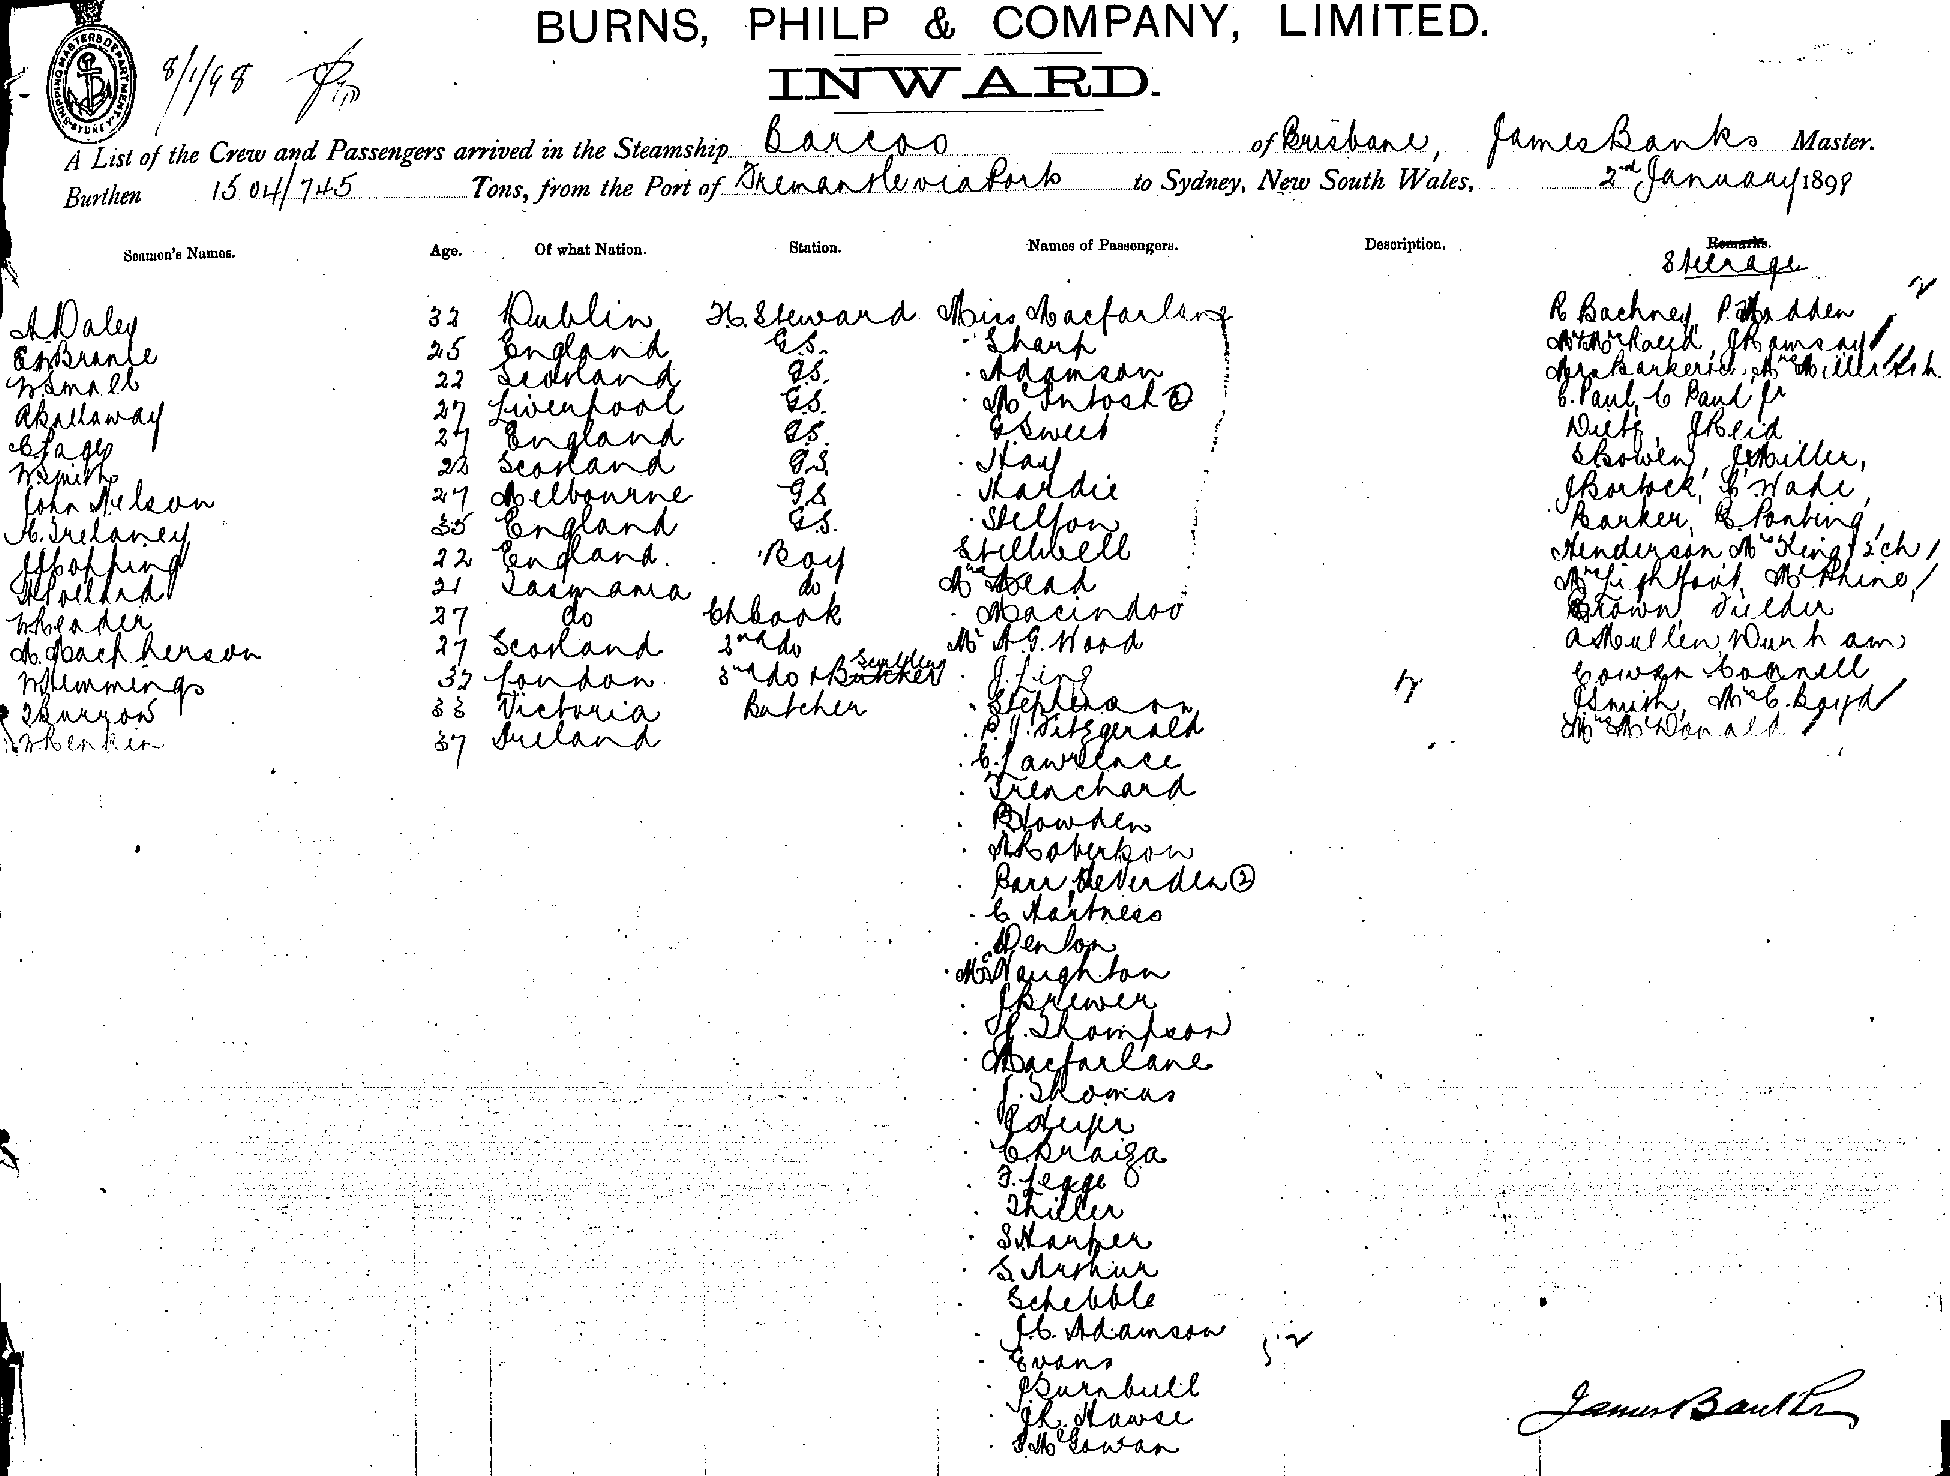 BURNS, PHILP & COMPANY, LIMITED.
INWARD.
SHIPPING MASTERS DEPARTMENT SYDNEY
8/1/98
A List of the Crew and Passengers arrived in the Steamship Barcoo of Brisbane, James Banks Master.
Burthen 1504/745 Tons, from the Port of Fremantle via Ports to Sydney, New South Wales, 2nd January 1898
Seamen's Names. Age. Of what Nation. Station. Names of Passengers. Description. Remarks.
Steerage
A Daley 32 Dublin H. Steward Miss Macfarlane R Bachney, P Madden
25 England G.S. Sharp J Ramsay
W Small 22 Scotland G.S. Adamson Mrs Barker
27 Liverpool G.S. McIntosh 2 C. Paul, C Paul jr
C Page 27 England G.S. G Sweet Dietz, J Reid
W Smith 22 Scotland G.S. Hay S Bowen, J Miller,
John Nelson 27 Melbourne G.S. Hardie J Bostock, C Wade,
A. Trelaney 35 England G.S. Stelfox Barker, G. Ponting,
J Hopping 22 England. Boy Stillwell Henderson Mrs King & 2 ch
H Pollard 21 Tasmania do Mrs Mead Mrs Lightfoot, McPhine
W Reader 27 do Ch Cook Macindoo Brown, Tielder
A. Macpherson 27 Scotland 2nd do Mr A.G. Wood A Mullen, Durham
W Hemmings 32 London 3rd do & Butcher J. Ling Cowan Connell
T Burrow 33 Victoria Butcher Stephenson J Smith, Mrs C. Boyd
W Renkin 37 Ireland P. J. Fitzgerald Mrs McDonald
C. Lawrence
Trenchard
Plowden
A Robertson
Barr, De Verden 2
C Hartness
Denton
McNaughton
J Brewer
J. Thompson
Macfarlane
J. Thomas
C Braiga
F. Legge
T Hiller
S Harper
S. Arthur
Schebble
J C. Adamson
Evans
J Turnbull
J R. Hawse
J McGowan
52
17
James Banks